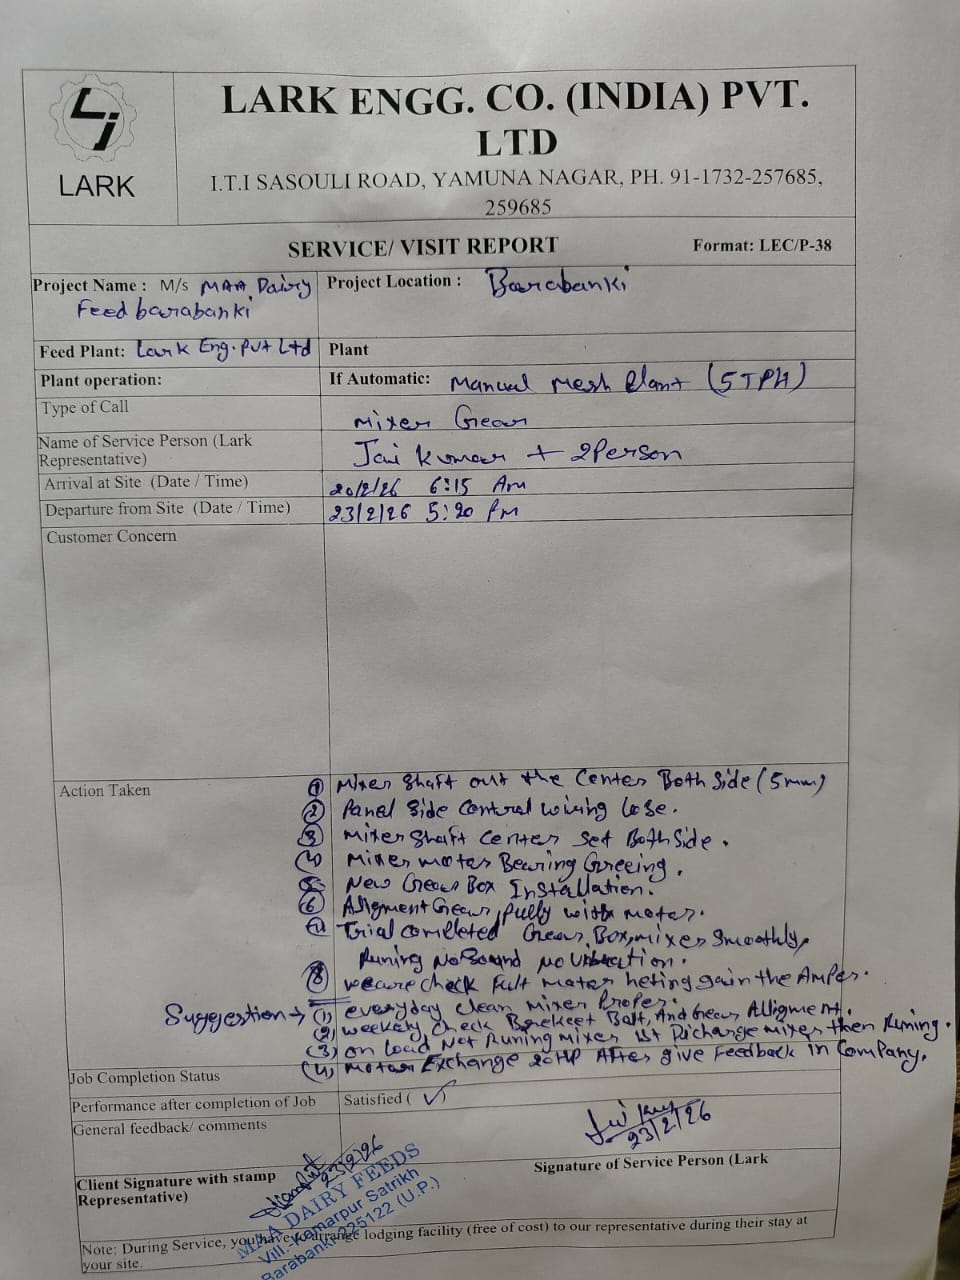 LARK ENGG. CO. (INDIA) PVT.
LTD
LARK
I.T.I SASOULI ROAD, YAMUNA NAGAR, PH. 91-1732-257685,
259685
SERVICE/ VISIT REPORT Format: LEC/P-38
Project Name : M/s MAA Dairy Project Location : Barabanki
Feed barabanki
Feed Plant: Lark Eng. Pvt Ltd Plant
Plant operation: If Automatic: Manual Mesh Plant (5TPH)
Type of Call Mixer Gear
Name of Service Person (Lark
Representative) Jai Kumar + 2Person
Arrival at Site (Date / Time) 20/2/26 6:15 Am
Departure from Site (Date / Time) 23/2/26 5:20 PM
Customer Concern
Action Taken (1) Mixer Shaft out the Center Both Side (5mm)
(2) Panel Side Control wiring lose.
(3) Mixer Shaft Center Set Both Side.
(4) Mixer motor Bearing Greeing.
(5) New Gear Box Installation.
(6) Allignment Gear, Pully with motor.
(7) Trial completed Gear Box, mixer Smoothly,
Runing No Sound No Vibration.
(8) we are check Full Motor heting gain the Amper.
Suggestion → (1) everyday clean mixer Proper.
(2) weekely check Brekeet Bolt, And Gear Alligment.
(3) on load Not Runing Mixer 1st Dicharge mixer then Runing.
(4) Motor Exchange 20HP After give Feedback in Company.
Job Completion Status
Performance after completion of Job Satisfied ( ✓ )
General feedback/ comments
23/2/26
23/2/26
Client Signature with stamp
Representative)
Signature of Service Person (Lark
MAA DAIRY FEEDS
Vill.-Kamarpur Satrikh
Barabanki-225122 (U.P.)
Note: During Service, you have to arrange lodging facility (free of cost) to our representative during their stay at
your site.